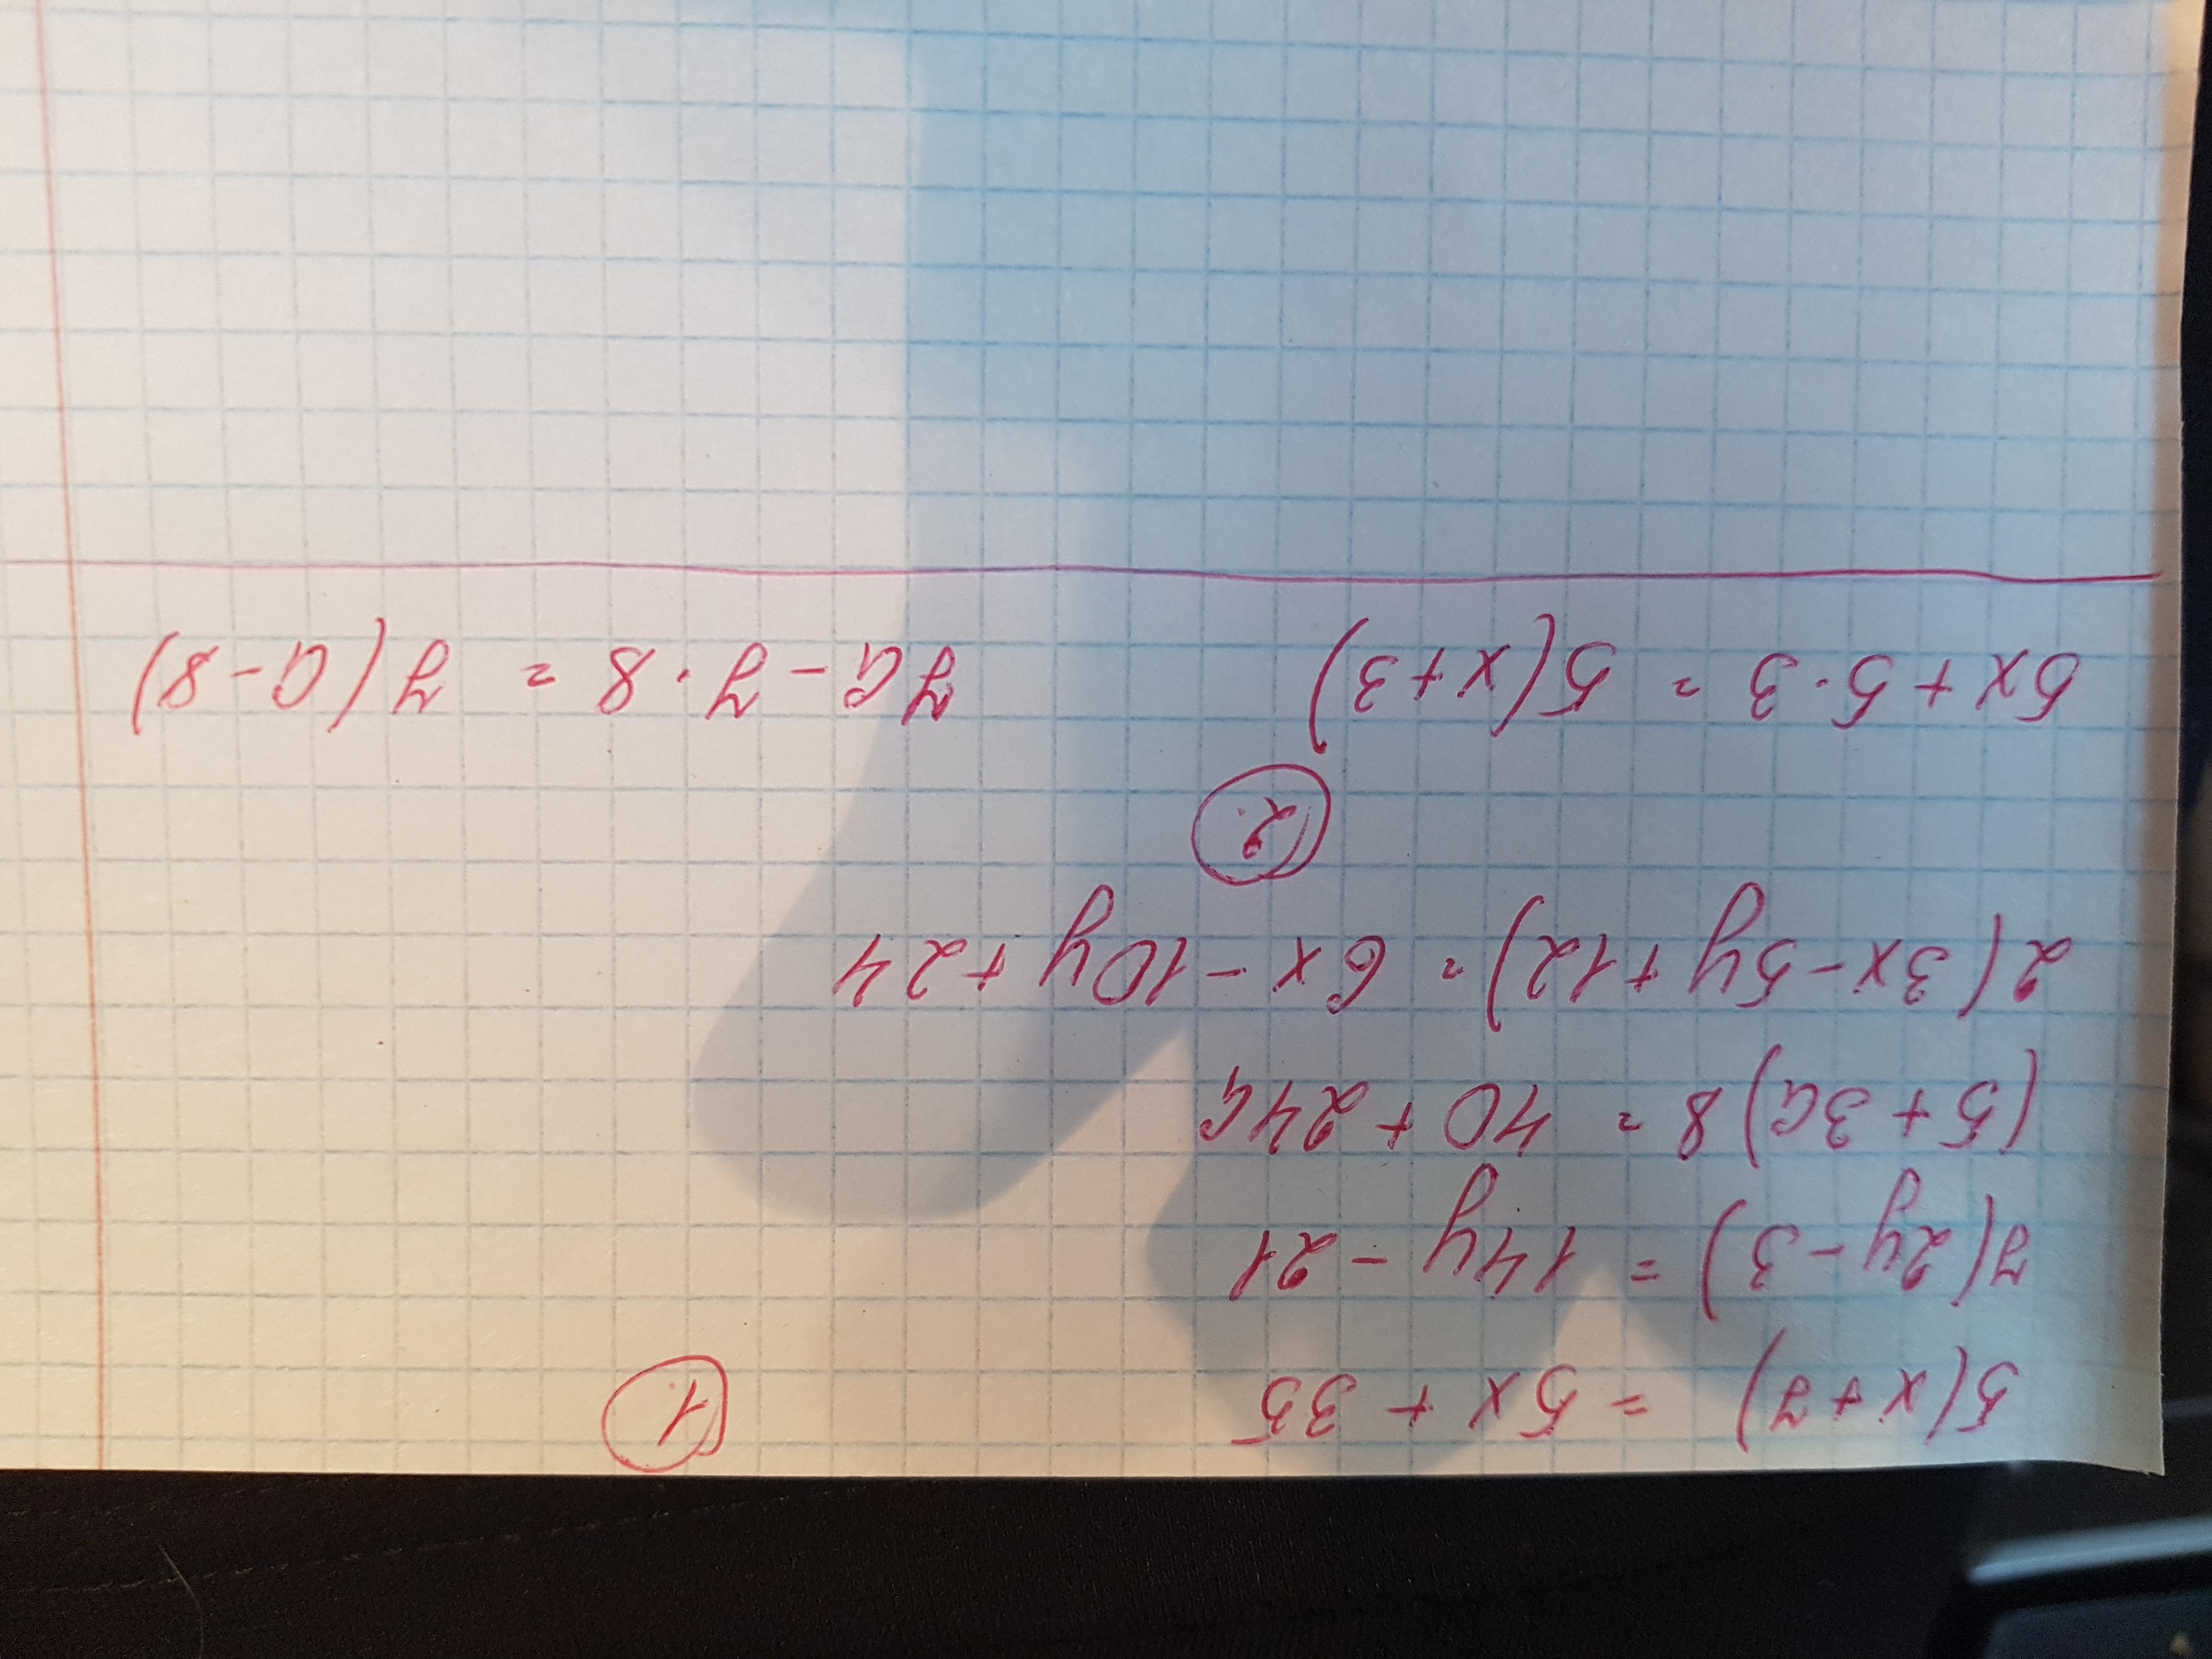 5(x+7) = 5x + 35 1.
7(2y-3) = 14y - 21
(5+3a)8 = 40 + 24a
2(3x-5y+12) = 6x - 10y + 24
2.
5x + 5·3 = 5(x+3) 7a - 7·8 = 7(a-8)